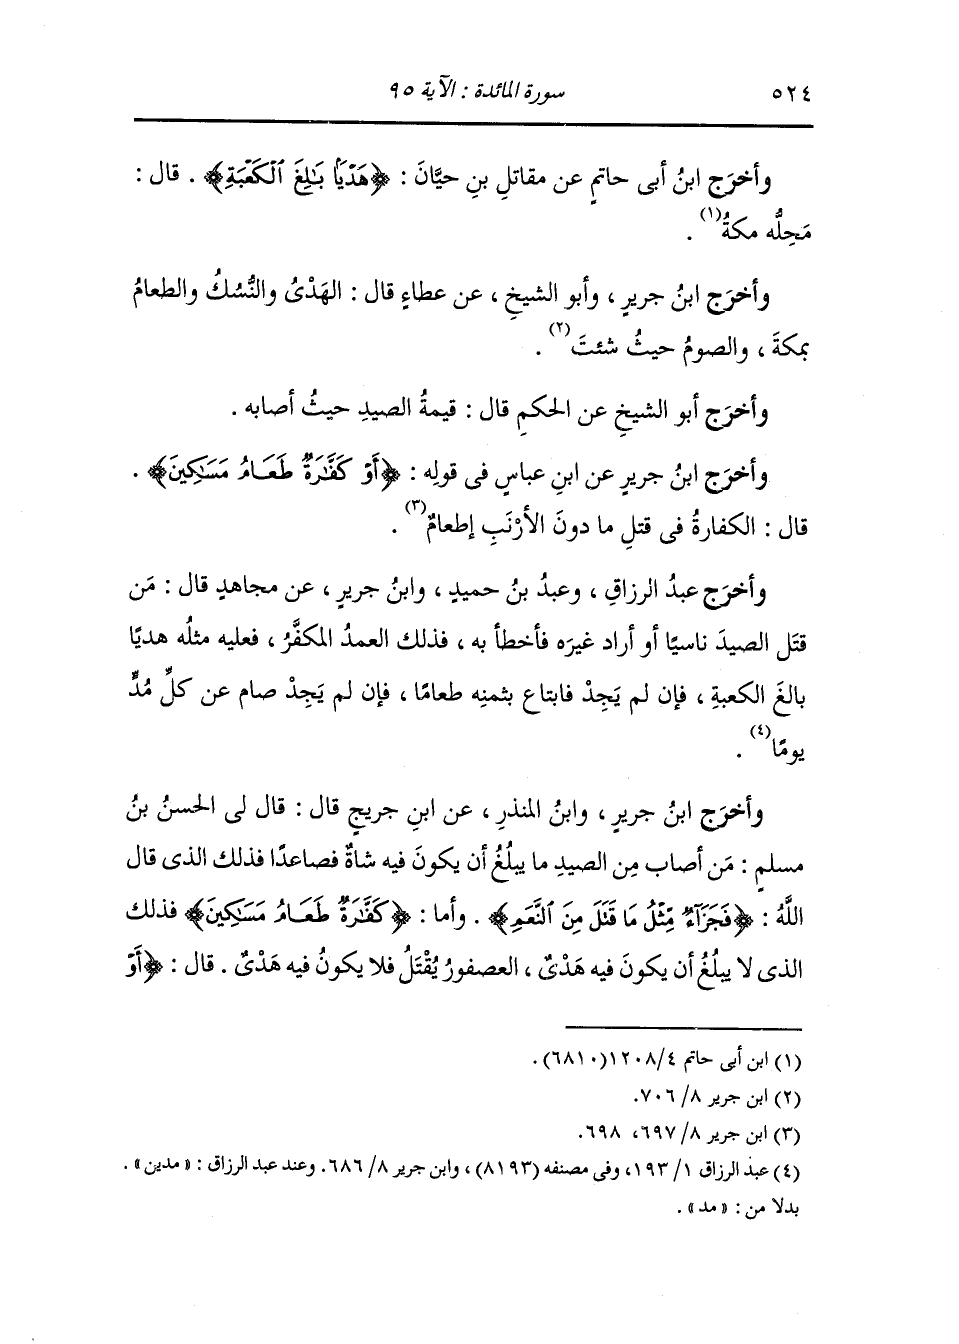 ٥٢٤ سورة المائدة : الآية ٩٥
وأخرَج ابنُ أبى حاتمٍ عن مقاتلِ بنِ حيَّانَ : ﴿هَدْيًۢا بَـٰلِغَ ٱلْكَعْبَةِ﴾ . قال :
مَحِلُّه مكةُ(١) .
وأخرَج ابنُ جريرٍ ، وأبو الشيخِ ، عن عطاءٍ قال : الهَدْىُ والنُّسُكُ والطعامُ
بمكةَ ، والصومُ حيثُ شئتَ(٢) .
وأخرَج أبو الشيخِ عن الحكمِ قال : قيمةُ الصيدِ حيثُ أصابه .
وأخرَج ابنُ جريرٍ عن ابنِ عباسٍ فى قولِه : ﴿أَوْ كَفَّـٰرَةٌ طَعَامُ مَسَـٰكِينَ﴾ .
قال : الكفارةُ فى قتلِ ما دونَ الأرْنَبِ إطعامٌ(٣) .
وأخرَج عبدُ الرزاقِ ، وعبدُ بنُ حميدٍ ، وابنُ جريرٍ ، عن مجاهدٍ قال : مَن
قتَل الصيدَ ناسيًا أو أراد غيرَه فأخطأ به ، فذلك العمدُ المكفَّرُ ، فعليه مثلُه هديًا
بالغَ الكعبةِ ، فإن لم يَجِدْ فابتاع بثمنِه طعامًا ، فإن لم يَجِدْ صام عن كلِّ مُدٍّ
يومًا(٤) .
وأخرَج ابنُ جريرٍ ، وابنُ المنذرِ ، عن ابنِ جريجٍ قال : قال لى الحسنُ بنُ
مسلمٍ : مَن أصاب مِن الصيدِ ما يبلُغُ أن يكونَ فيه شاةٌ فصاعدًا فذلك الذى قال
اللَّهُ : ﴿فَجَزَآءٌ مِّثْلُ مَا قَتَلَ مِنَ ٱلنَّعَمِ﴾ . وأما : ﴿كَفَّـٰرَةٌ طَعَامُ مَسَـٰكِينَ﴾ فذلك
الذى لا يبلُغُ أن يكونَ فيه هَدْىٌ ، العصفورُ يُقْتَلُ فلا يكونُ فيه هَدْىٌ . قال : ﴿أَوْ
(١) ابن أبى حاتم ٤/ ١٢٠٨(٦٨١٠).
(٢) ابن جرير ٨/ ٧٠٦.
(٣) ابن جرير ٨/ ٦٩٧، ٦٩٨.
(٤) عبد الرزاق ١/ ١٩٣، وفى مصنفه (٨١٩٣) ، وابن جرير ٨/ ٦٨٦. وعند عبد الرزاق : « مدين » .
بدلا من : « مد » .